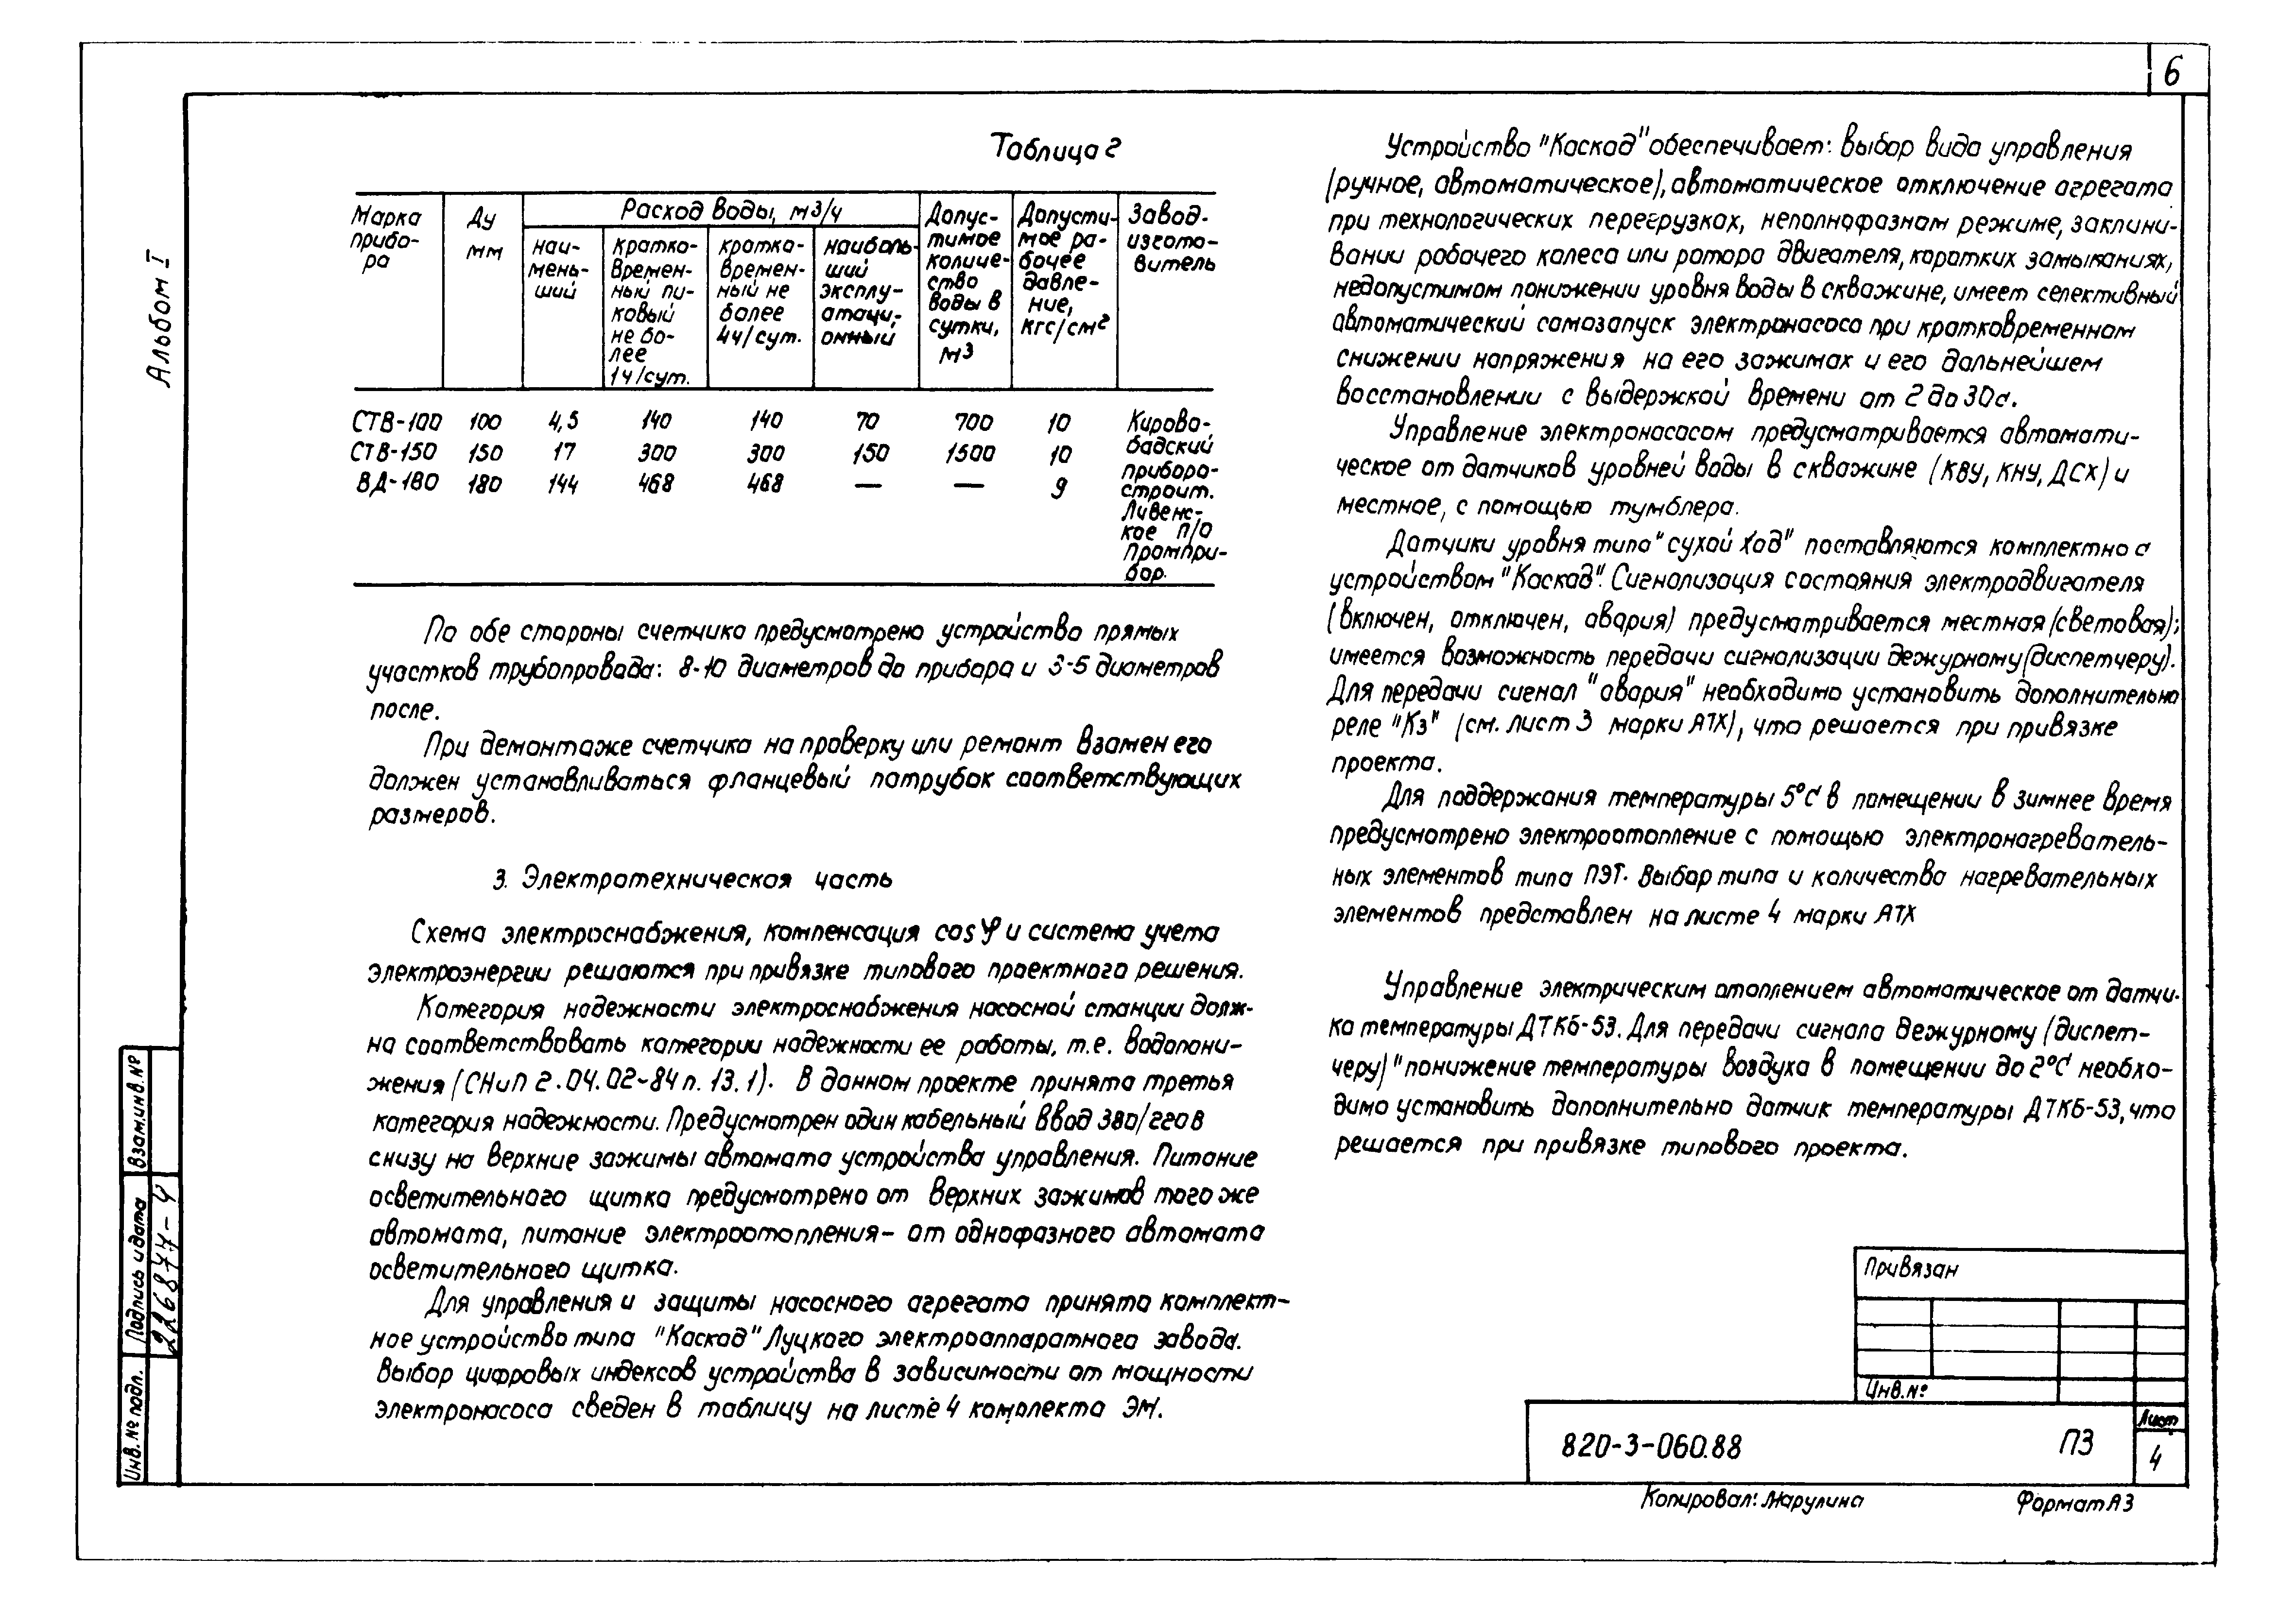 6
Альбом I
Таблица 2
Марка прибо- ра
Ду мм
Расход воды, м3/ч
наи- мень- ший
кратко- времен- ный пи- ковый не бо- лее 1ч/сут.
кратко- времен- ный не более 4ч/сут.
наиболь- ший эксплу- атаци- онный
Допус- тимое количе- ство воды в сутки, м3
Допусти- мое ра- бочее давле- ние, кгс/см2
Завод- изгото- витель
СТВ-100 100 4,5 140 140 70 700 10
СТВ-150 150 17 300 300 150 1500 10
ВД-180 180 144 468 468 — — 9
Кирово-
бадский
приборо-
строит.
Ливенс-
кое п/о
Промпри-
бор.
По обе стороны счетчика предусмотрено устройство прямых
участков трубопровода: 8-10 диаметров до прибора и 3-5 диаметров
после.
При демонтаже счетчика на проверку или ремонт взамен его
должен устанавливаться фланцевый патрубок соответствующих
размеров.
3. Электротехническая часть
Схема электроснабжения, компенсация cos φ и система учета
электроэнергии решаются при привязке типового проектного решения.
Категория надежности электроснабжения насосной станции долж-
на соответствовать категории надежности ее работы, т.е. водопони-
жения (СНиП 2.04.02-84 п. 13.1). В данном проекте принята третья
категория надежности. Предусмотрен один кабельный ввод 380/220В
снизу на верхние зажимы автомата устройства управления. Питание
осветительного щитка предусмотрено от верхних зажимов того же
автомата, питание электроотопления- от однофазного автомата
осветительного щитка.
Для управления и защиты насосного агрегата принято комплект-
ное устройство типа "Каскад" Луцкого электроаппаратного завода.
Выбор цифровых индексов устройства в зависимости от мощности
электронасоса сведен в таблицу на листе 4 комплекта ЭМ.
Устройство "Каскад" обеспечивает: выбор вида управления
(ручное, автоматическое), автоматическое отключение агрегата
при технологических перегрузках, неполнофазном режиме, заклини-
вании рабочего колеса или ротора двигателя, коротких замыканиях,
недопустимом понижении уровня воды в скважине, имеет селективный
автоматический самозапуск электронасоса при кратковременном
снижении напряжения на его зажимах и его дальнейшем
восстановлении с выдержкой времени от 2 до 30с.
Управление электронасосом предусматривается автомати-
ческое от датчиков уровней воды в скважине (КВУ, КНУ, ДСХ) и
местное, с помощью тумблера.
Датчики уровня типа "сухой ход" поставляются комплектно с
устройством "Каскад". Сигнализация состояния электродвигателя
(включен, отключен, авария) предусматривается местная (световая);
имеется возможность передачи сигнализации дежурному (диспетчеру).
Для передачи сигнал "авария" необходимо установить дополнительно
реле "К3" (см. лист 3 марки АТХ), что решается при привязке
проекта.
Для поддержания температуры 5°С в помещении в зимнее время
предусмотрено электроотопление с помощью электронагреватель-
ных элементов типа ПЭТ. Выбор типа и количества нагревательных
элементов представлен на листе 4 марки АТХ
Управление электрическим отоплением автоматическое от датчи-
ка температуры ДТКБ-53. Для передачи сигнала дежурному (диспет-
черу) "понижение температуры воздуха в помещении до 2°С необхо-
димо установить дополнительно датчик температуры ДТКБ-53, что
решается при привязке типового проекта.
Взам.инв.№
Подпись и дата
226877-4
Инв.№ подл.
Привязан
Инв.№
820-3-060.88
ПЗ
Лист
4
Копировал: Марулина
Формат А3